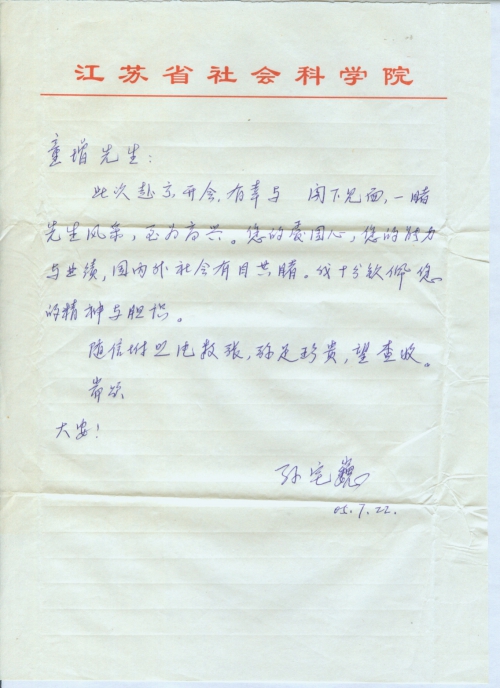 江苏省社会科学院
童增先生:
此次赴京开会,有幸与 阁下见面,一睹
先生风采,至为高兴。您的爱国心,您的能力
与业绩,国内外社会有目共睹。我十分钦佩您
的精神与胆识。
随信附照片数张,弥足珍贵,望查收。
耑颂
大安!
孙宅巍
05.7.22.